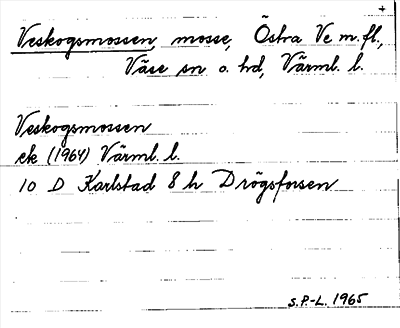 +
Veskogsmossen, mosse, Östra Ve m.fl.,
Väse sn o. hd, Värml. l.
Veskogsmossen
ek (1964) Värml. l.
10 D Karlstad 8 h Drögsforsen
S.P.-L. 1965